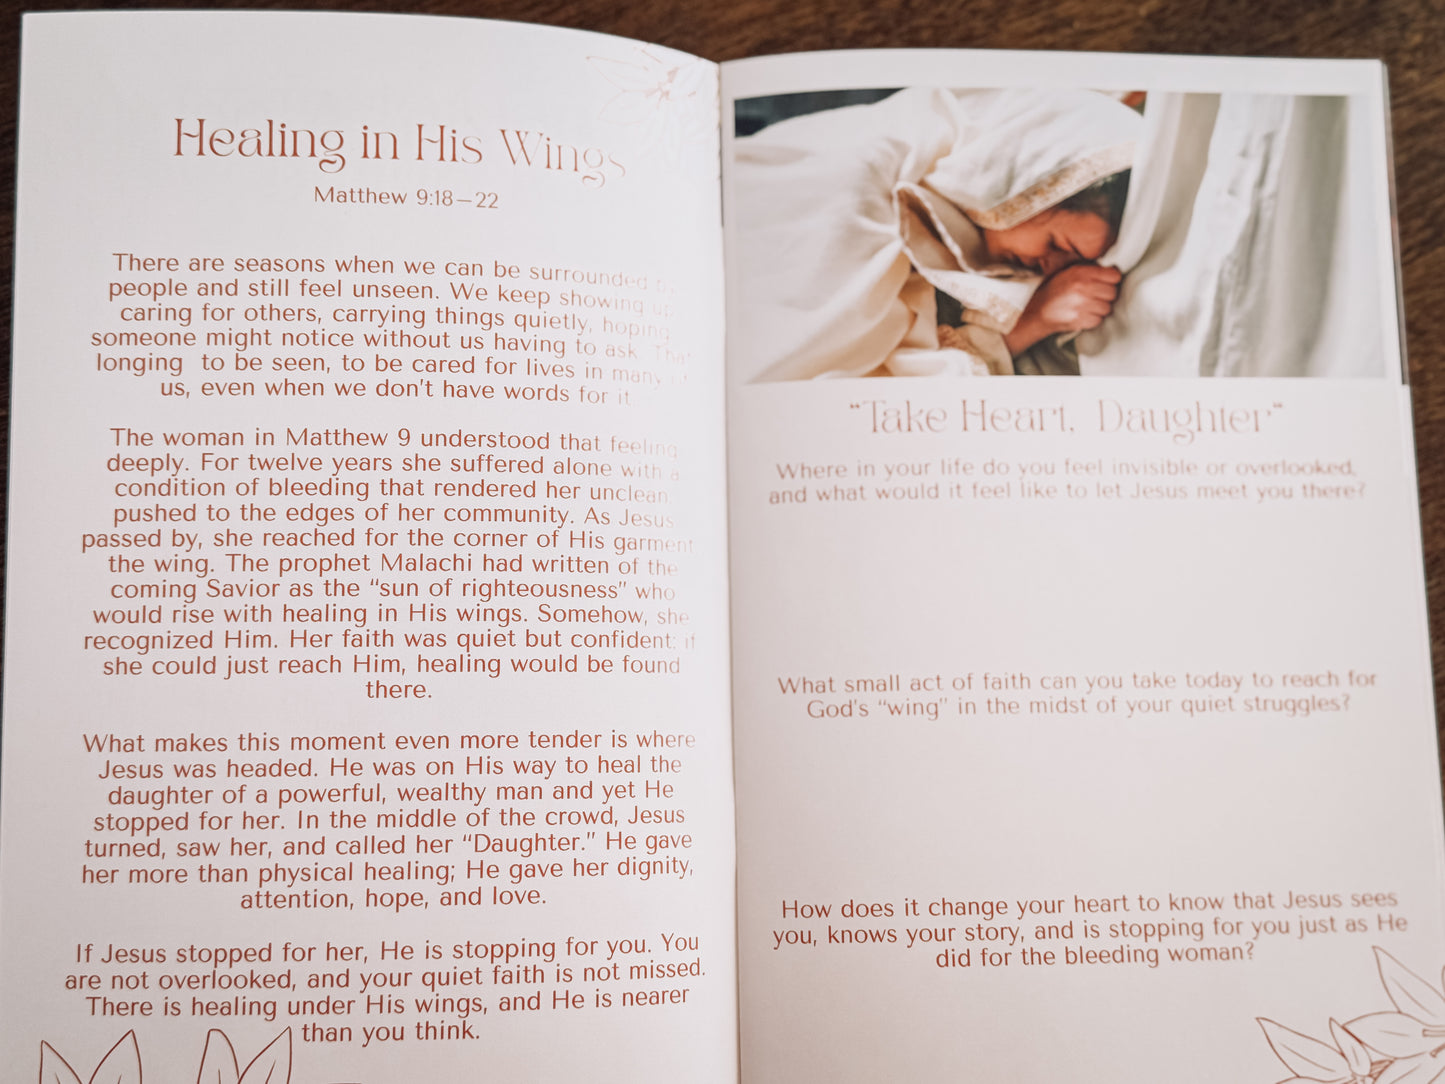 Healing in His Wings
Matthew 9:18—22
There are seasons when we can be surrounded
people and still feel unseen. We keep showing up,
caring for others, carrying things quietly, hoping
someone might notice without us having to ask. That
longing to be seen, to be cared for lives in many of
us, even when we don't have words for it.
The woman in Matthew 9 understood that feeling
deeply. For twelve years she suffered alone with a
condition of bleeding that rendered her unclean,
pushed to the edges of her community. As Jesus
passed by, she reached for the corner of His garment
the wing. The prophet Malachi had written of the
coming Savior as the “sun of righteousness” who
would rise with healing in His wings. Somehow, she
recognized Him. Her faith was quiet but confident; if
she could just reach Him, healing would be found
there.
What makes this moment even more tender is where
Jesus was headed. He was on His way to heal the
daughter of a powerful, wealthy man and yet He
stopped for her. In the middle of the crowd, Jesus
turned, saw her, and called her “Daughter.” He gave
her more than physical healing; He gave her dignity,
attention, hope, and love.
If Jesus stopped for her, He is stopping for you. You
are not overlooked, and your quiet faith is not missed.
There is healing under His wings, and He is nearer
than you think.
“Take Heart, Daughter”
Where in your life do you feel invisible or overlooked,
and what would it feel like to let Jesus meet you there?
What small act of faith can you take today to reach for
God's “wing” in the midst of your quiet struggles?
How does it change your heart to know that Jesus sees
you, knows your story, and is stopping for you just as He
did for the bleeding woman?